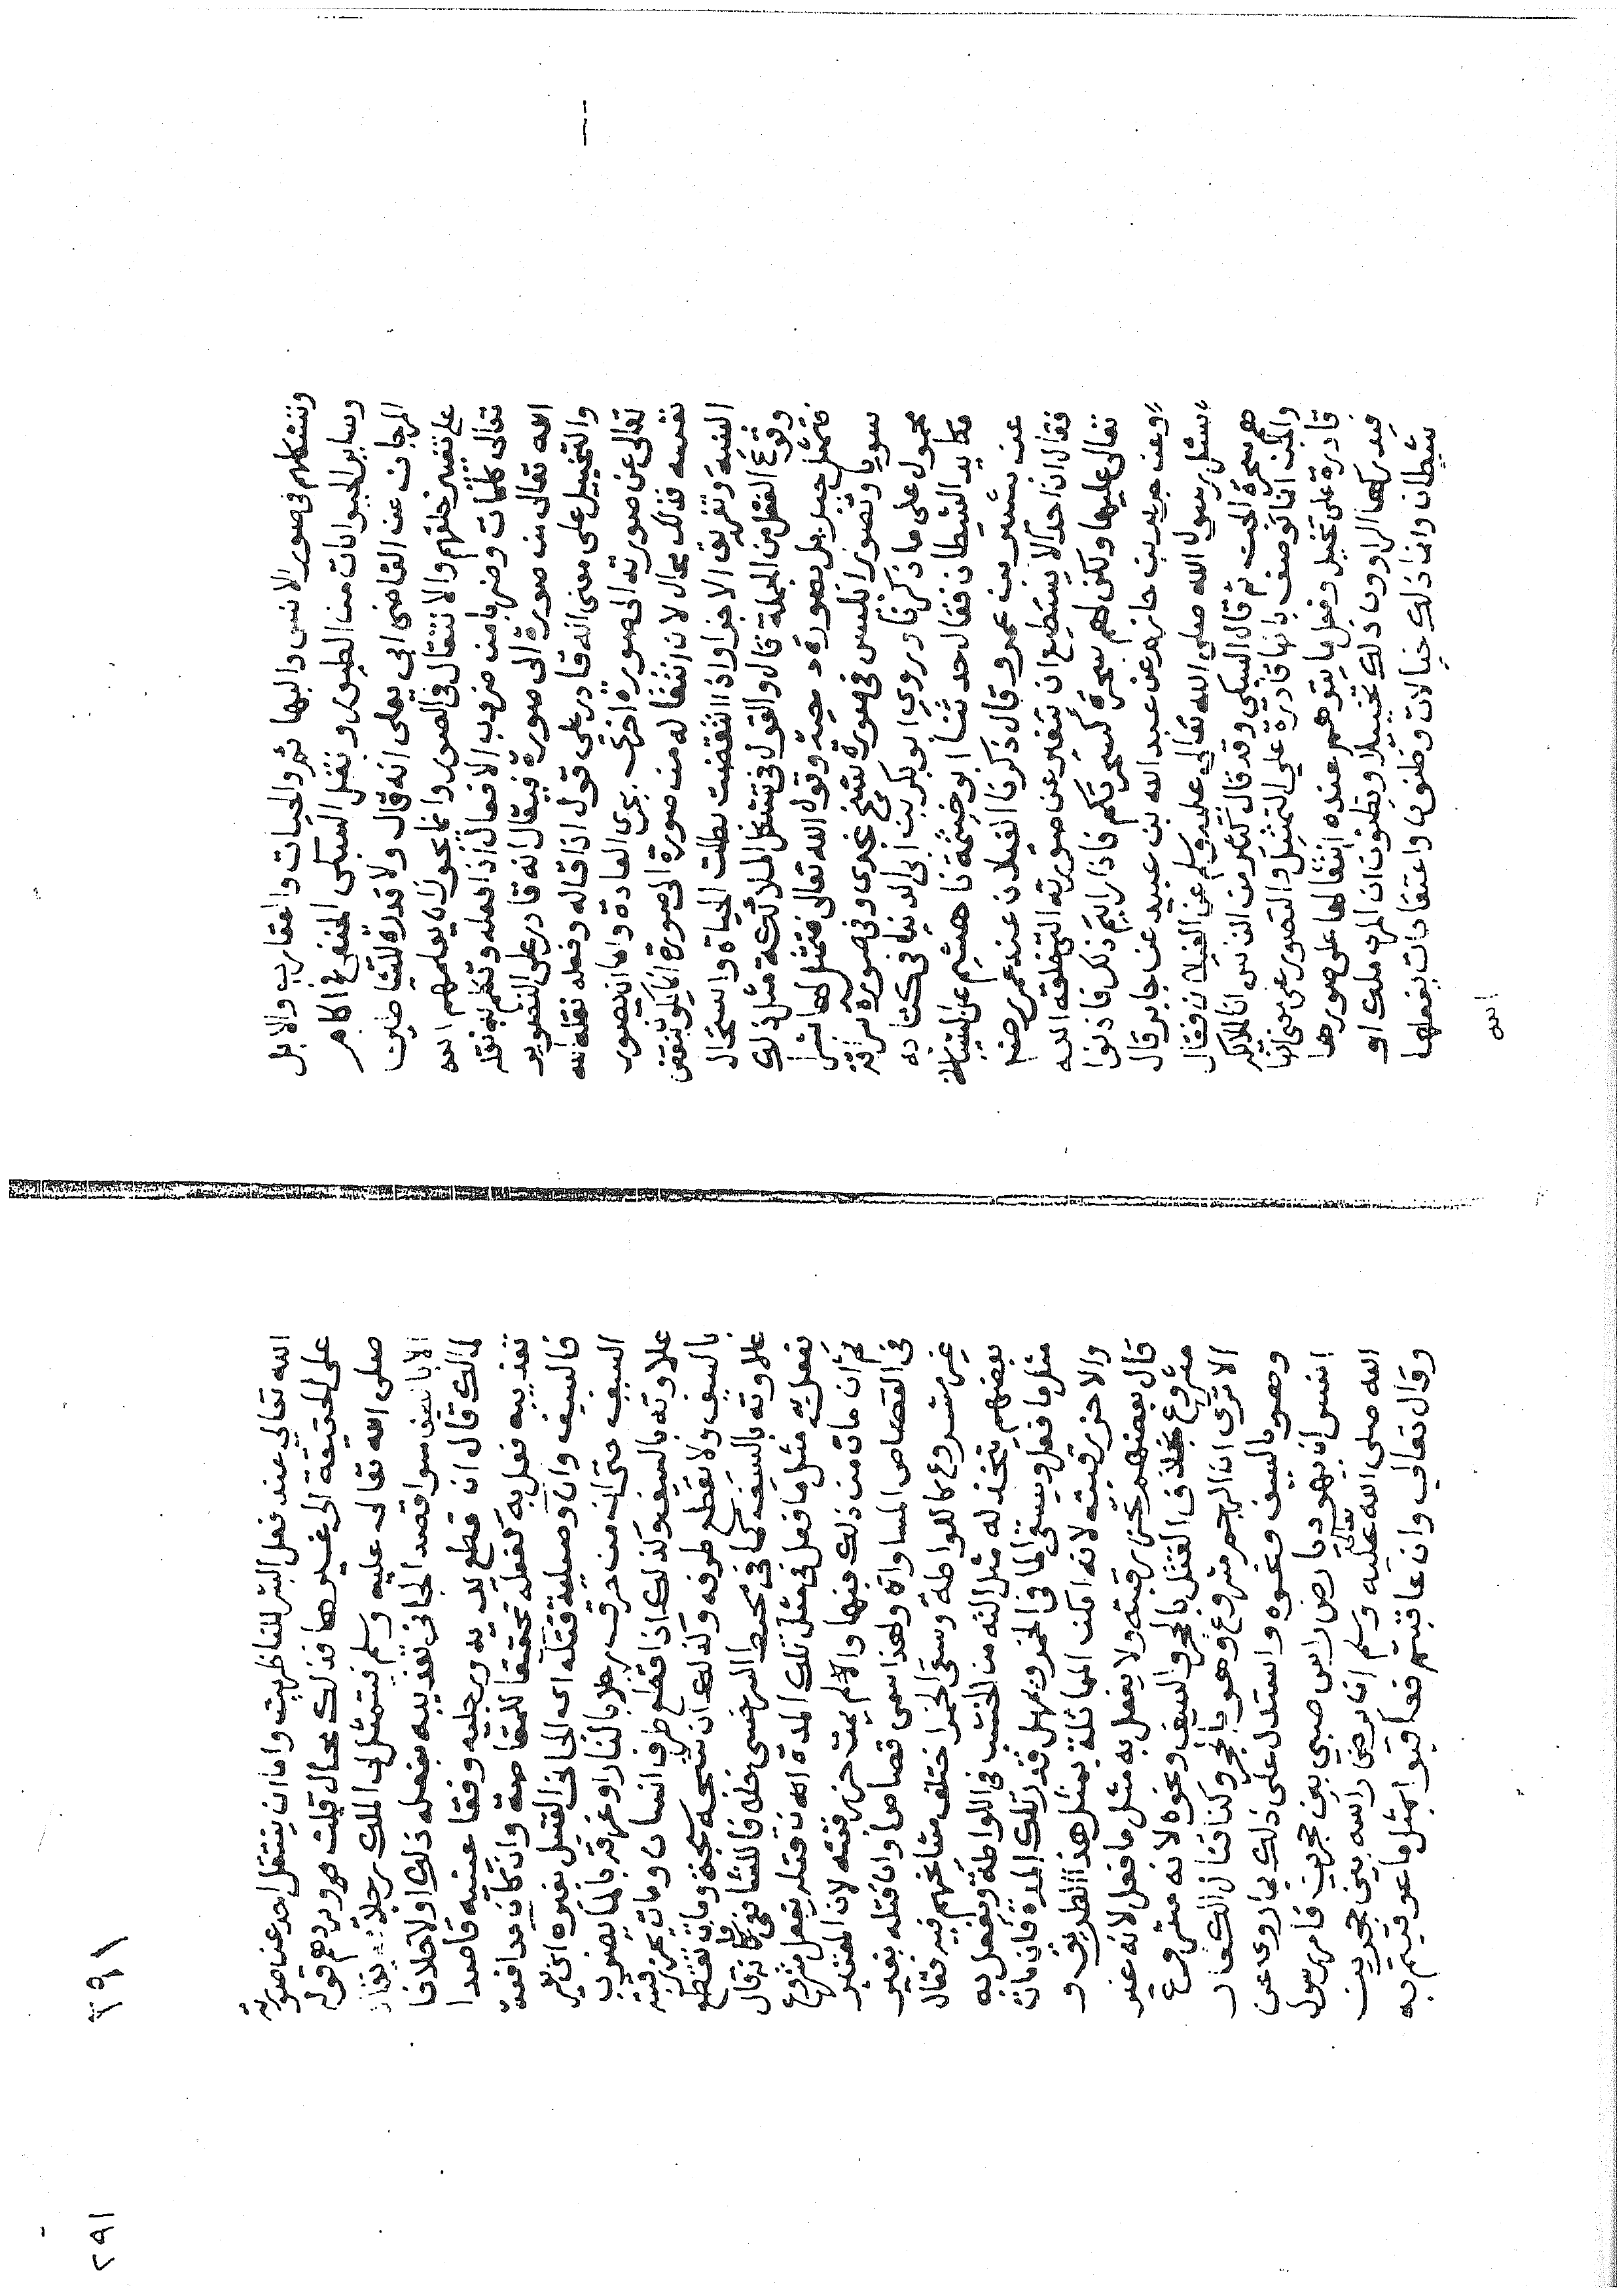 وتتشكلهم في صور الانس والبهائم والحيات والعقارب والابل
وساير الحيوانات من الطيور ونقل السبكي الحنفي في اكام
المرجان عن القاضي ابي يعلى انه قال ولا قدرة للشياطين
على تغيير خلقهم والانتقال في الصور وانما يجوز ان يعلمهم الله
تعالى كلمات وضربا من ضروب الافعال اذا فعله وتكلم به نقله
الله تعالى من صورة الى صورة فيقال انه قادر على التصوير
والتخييل على معنى انه قادر على قول اذا قاله وفعله نقله الله
تعالى عن صورته الى صورة اخرى بجري العادة واما ان يصور
نفسه فذلك محال لان انتقاله من صورة الى صورة انما يكون بنقض
البنية وتفريق الاجزا واذا انتقضت بطلت الحياة واستحال
وقوع الفعل من الجملة قال والقول في تشكل الملائكة مثل ذلك
فتمثل جبريل بصورة دحية وقول الله تعالى فتمثل لها بشرا
سويا وتصور ابليس في صورة شيخ نجدي وفي صورة سراقة
محمول على ما ذكرنا وروي ابو بكر بن ابي الدنيا في كتابه
مكايد الشيطان فقال حدثنا ابو خيثمة نا هشيم عن الشيباني
عن يسير بن عمرو قال ذكرنا الغيلان عند عمر رضه
فقال ان احدا لا يستطيع ان يتغير عن صورته التي خلقه الله
تعالى عليها ولكن لهم سحرة كسحرتكم فاذا رايتم ذلك فاذنوا
وعن جرير بن حازم عن عبد الله بن عبيد عن جابر قال
سئل رسول الله صلى الله تعالى عليه وسلم عن الغيلان فقال
هم سحرة الجن ثم قال السبكي وقد قال كثير من الناس ان الملائكة
والجن انما توصف بانها قادرة على التمثيل والتصور على معنى انها
قادرة على تخيل وفعل ما يتوهم عنده انتقالها على صورها
فيدركها الراوون ذلك تخييلا ويظنون ان المرئ ملك او
شيطان وانما ذلك خيالات وظنون واعتقادات بفعلها
الله
١٩٢
٢٩١
الله تعالى عند فعل البشر للناظرين واما ان ينتقل احد عن صورته
على الحقيقة الى غيرها فذلك محال قلت ويردهم قوله
صلى الله تعالى عليه وسلم فيتمثل لي الملك رجلا
الا بالسيف سوا قصد الجاني تعذيبه بفعله ذلك او لا خلافا
لمالك قال ان قطع يديه ورجليه وفقا عينيه قاصدا
تعذيبه فعل به كفعله تحقيقا للمقاصة وان كان مدافعة
فالسيف وان وصيلية قتله اي الجاني القتيل بغيره اي بغير
السيف حتى انه من حرق رجلا بالنار او غرقه بالما يضرب
علاوته بالسيف وكذلك اذا قطع طرف انسان ومات تحز رقبته
بالسيف ولا يقطع طرفه وكذلك ان شجه شجة ومات تقطع
علاوته بالسيف كما في محيط السرخسي خلافا للشافعي فانه قال
يفعل به مثل ما فعل في مثل تلك المدة ان قتله بفعل مشروع
ثم ان مات من ذلك فبها والا لم يمت حز رقبته لان المعتبر
في القصاص المساواة ولهذا سمي قصاصا وان قتله بغير
غير مشروع كاللواطة وسقي الخمر اختلف مشايخهم فيه فقال
بعضهم يتخذ له مثل الته من الخشب في اللواطة ويفعل به
مثل ما فعل ويسقى الما في الخمر ويمهل قدر تلك المدة فان مات
والا حز رقبته لانه امكن المماثلة بمثل هذا الطريق و
قال بعضهم تحز رقبته ولا يفعل به مثل ما فعل لانه غير
مشروع بخلاف القتل بالحجر والسيف ونحوه لانه مشروع
الا ترى ان الرجم مشروع وهو بالحجر وكذا قتال الكفار
وهو بالسيف ونحوه واستدل على ذلك بما روى عن
انس ان يهوديا رض راس صبي بين حجرين فامر رسول
الله صلى الله تعالى عليه وسلم ان يرض راسه بين حجرين
وقال تعالى وان عاقبتم فعاقبوا بمثل ما عوقبتم به